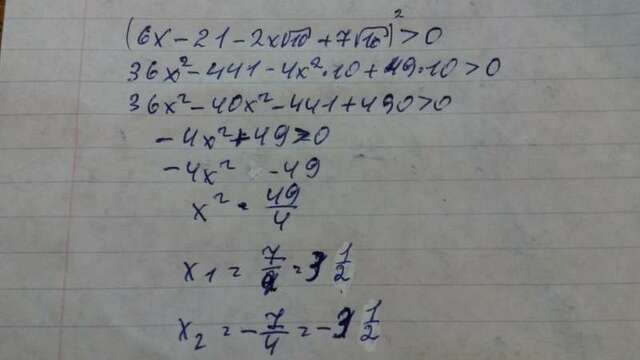 (6x - 21 - 2x√10 + 7√10)² > 0
36x² - 441 - 4x²·10 + 49·10 > 0
36x² - 40x² - 441 + 490 > 0
- 4x² + 49 > 0
- 4x² - 49
x² = 49/4
x₁ = 7/2 = 3 1/2
x₂ = - 7/4 = - 3 1/2